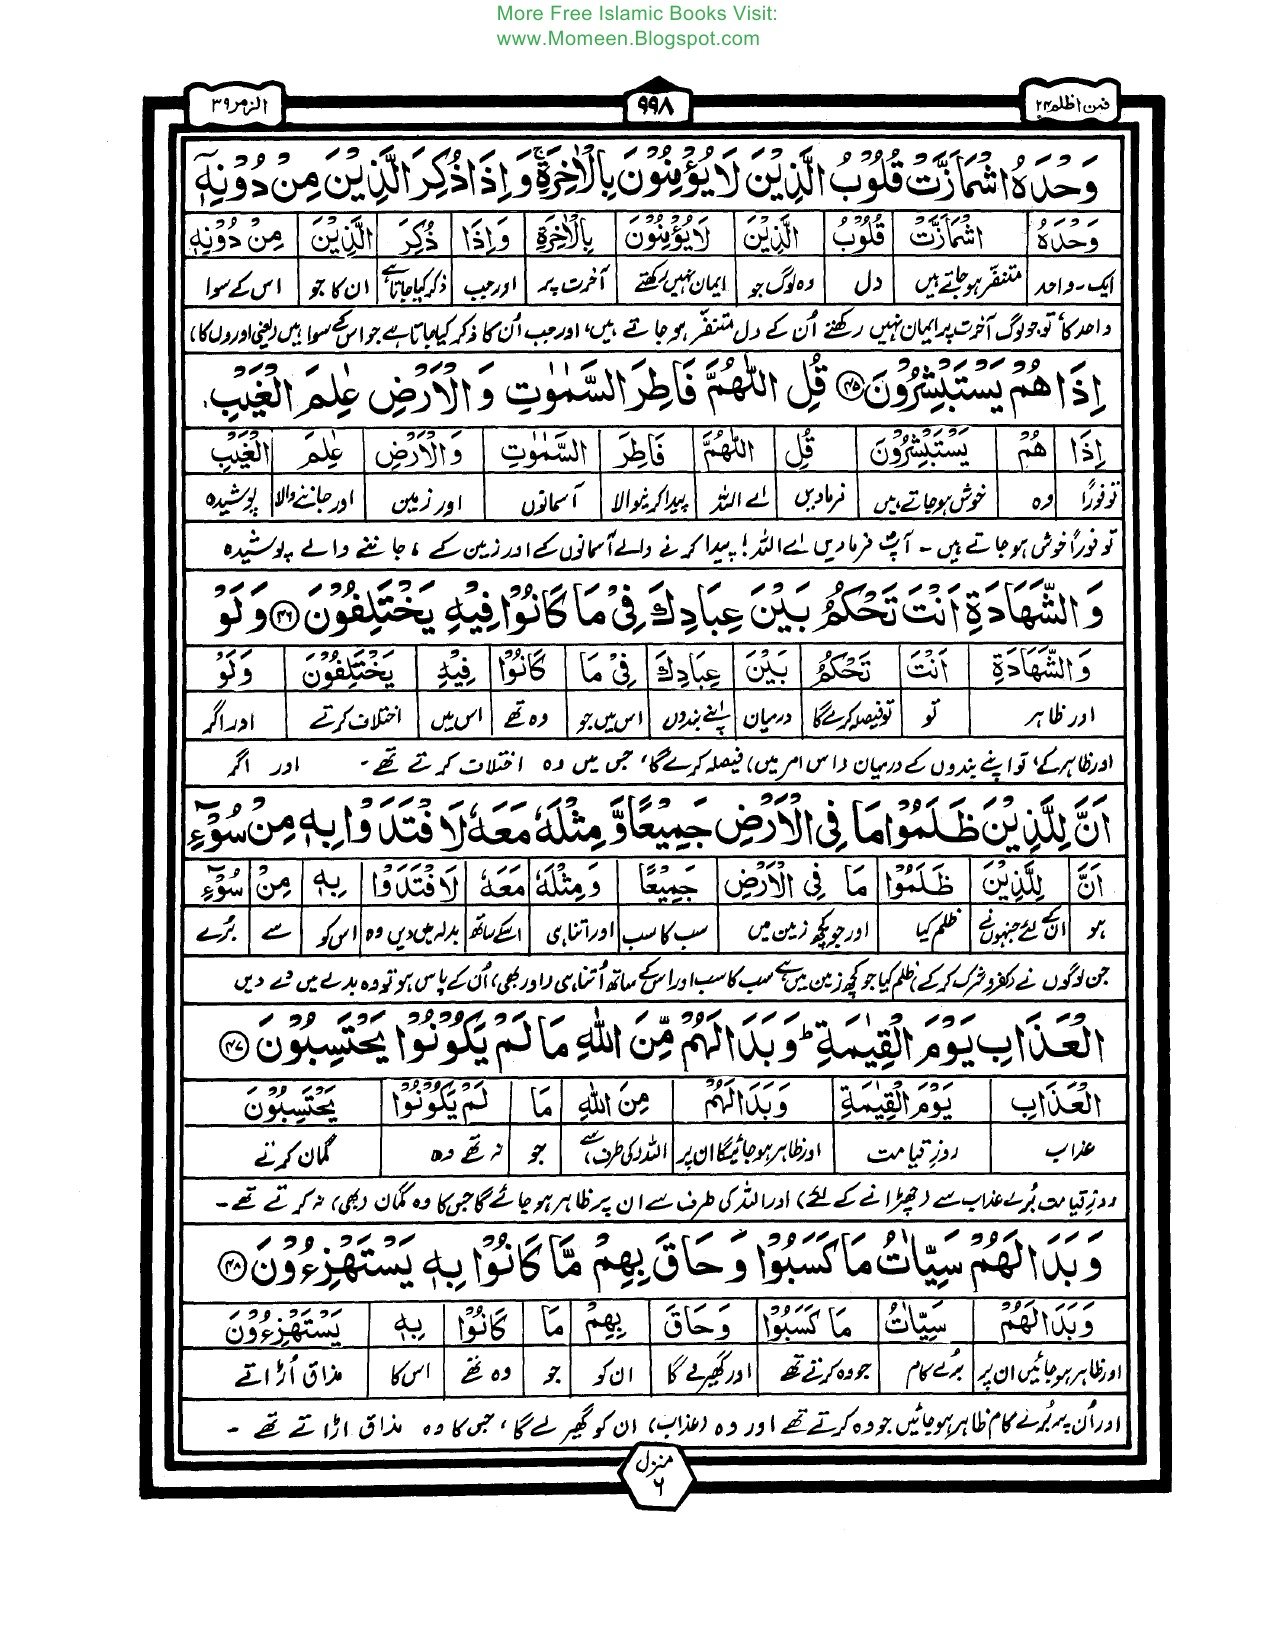 More Free Islamic Books Visit:
www.Momeen.Blogspot.com
الزمر ۳۹
۹۹۸
فمن اظلم ۲۴
وَحْدَهُ اشْمَاَزَّتْ قُلُوْبُ الَّذِيْنَ لَا يُؤْمِنُوْنَ بِالْاٰخِرَةِ ۚ وَاِذَا ذُكِرَ الَّذِيْنَ مِنْ دُوْنِهٖٓ
وَحْدَهُ اشْمَاَزَّتْ قُلُوْبُ الَّذِيْنَ لَا يُؤْمِنُوْنَ بِالْاٰخِرَةِ وَاِذَا ذُكِرَ الَّذِيْنَ مِنْ دُوْنِهٖٓ
ایک۔واحد متنفّر ہوجاتے ہیں دل وہ لوگ جو ایمان نہیں رکھتے آخرت پر اور جب ذکر کیا جاتا ہے ان کا جو اس کے سوا
واحد کا تو جو لوگ آخرت پر ایمان نہیں رکھتے اُن کے دل متنفّر ہو جاتے ہیں، اور جب اُن کا ذکر کیا جاتا ہے جو اس کے سوا ہیں (یعنی اوروں کا)
اِذَا هُمْ يَسْتَبْشِرُوْنَ ۴۵ قُلِ اللّٰهُمَّ فَاطِرَ السَّمٰوٰتِ وَالْاَرْضِ عٰلِمَ الْغَيْبِ
اِذَا هُمْ يَسْتَبْشِرُوْنَ قُلِ اللّٰهُمَّ فَاطِرَ السَّمٰوٰتِ وَالْاَرْضِ عٰلِمَ الْغَيْبِ
تو فوراً وہ خوش ہوجاتے ہیں فرمادیں اے اللہ پیدا کرنیوالا آسمانوں اور زمین اور جاننے والا پوشیدہ
تو فوراً خوش ہو جاتے ہیں ۔ آپ فرمادیں اے اللہ! پیدا کرنے والے آسمانوں کے اور زمین کے ، جاننے والے پوشیدہ
وَالشَّهَادَةِ اَنْتَ تَحْكُمُ بَيْنَ عِبَادِكَ فِيْ مَا كَانُوْا فِيْهِ يَخْتَلِفُوْنَ ۴۶ وَلَوْ
وَالشَّهَادَةِ اَنْتَ تَحْكُمُ بَيْنَ عِبَادِكَ فِيْ مَا كَانُوْا فِيْهِ يَخْتَلِفُوْنَ وَلَوْ
اور ظاہر تو تو فیصلہ کرے گا درمیان اپنے بندوں اس میں جو وہ تھے اس میں اختلاف کرتے اور اگر
اور ظاہر کے، تو اپنے بندوں کے درمیان (اس امر میں) فیصلہ کرے گا، جس میں وہ اختلاف کرتے تھے۔ اور اگر
اَنَّ لِلَّذِيْنَ ظَلَمُوْا مَا فِي الْاَرْضِ جَمِيْعًا وَّمِثْلَهٗ مَعَهٗ لَافْتَدَوْا بِهٖ مِنْ سُوْٓءِ
اَنَّ لِلَّذِيْنَ ظَلَمُوْا مَا فِي الْاَرْضِ جَمِيْعًا وَمِثْلَهٗ مَعَهٗ لَافْتَدَوْا بِهٖ مِنْ سُوْٓءِ
ہو ان کے لئے جنہوں نے ظلم کیا اور جو کچھ زمین میں سب کا سب اور اتنا ہی اسکے ساتھ بدلہ میں دیں وہ اس کو سے بُرے
جن لوگوں نے (کفر و شرک کرکے) ظلم کیا جو کچھ زمین میں ہے سب کا سب اور اس کے ساتھ اُتنا ہی (اور بھی) اُن کے پاس ہو تو وہ بدلے میں دے دیں
الْعَذَابِ يَوْمَ الْقِيٰمَةِ ؕ وَبَدَا لَهُمْ مِّنَ اللّٰهِ مَا لَمْ يَكُوْنُوْا يَحْتَسِبُوْنَ ۴۷
الْعَذَابِ يَوْمَ الْقِيٰمَةِ وَبَدَا لَهُمْ مِنَ اللّٰهِ مَا لَمْ يَكُوْنُوْا يَحْتَسِبُوْنَ
عذاب روزِ قیامت اور ظاہر ہوجائیگا ان پر اللہ کی طرف سے جو نہ تھے وہ گمان کرتے
روزِ قیامت بُرے عذاب سے (چھڑانے کے لئے) اور اللہ کی طرف سے ان پر ظاہر ہوجائے گا جس کا وہ گمان (بھی) نہ کرتے تھے۔
وَبَدَا لَهُمْ سَيِّاٰتُ مَا كَسَبُوْا وَحَاقَ بِهِمْ مَّا كَانُوْا بِهٖ يَسْتَهْزِءُوْنَ ۴۸
وَبَدَا لَهُمْ سَيِّاٰتُ مَا كَسَبُوْا وَحَاقَ بِهِمْ مَا كَانُوْا بِهٖ يَسْتَهْزِءُوْنَ
اور ظاہر ہوجائیں ان پر بُرے کام جو وہ کرتے تھے اور گھیرلے گا ان کو جو وہ تھے اس کا مذاق اُڑاتے
اور اُن پر بُرے کام ظاہر ہوجائیں جو وہ کرتے تھے اور وہ (عذاب) ان کو گھیر لے گا، جس کا وہ مذاق اڑاتے تھے ۔
منزل
۶